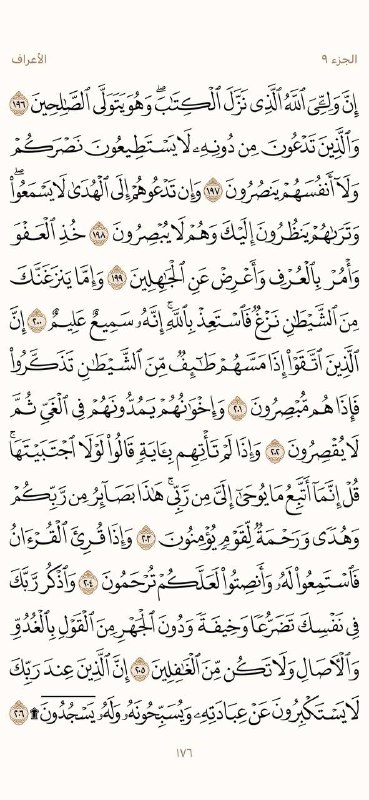 الجزء ٩
الأعراف
إِنَّ وَلِـِّۧيَ ٱللَّهُ ٱلَّذِى نَزَّلَ ٱلْكِتَـٰبَ ۖ وَهُوَ يَتَوَلَّى ٱلصَّـٰلِحِينَ ١٩٦
وَٱلَّذِينَ تَدْعُونَ مِن دُونِهِۦ لَا يَسْتَطِيعُونَ نَصْرَكُمْ
وَلَآ أَنفُسَهُمْ يَنصُرُونَ ١٩٧ وَإِن تَدْعُوهُمْ إِلَى ٱلْهُدَىٰ لَا يَسْمَعُوا۟ ۖ
وَتَرَىٰهُمْ يَنظُرُونَ إِلَيْكَ وَهُمْ لَا يُبْصِرُونَ ١٩٨ خُذِ ٱلْعَفْوَ
وَأْمُرْ بِٱلْعُرْفِ وَأَعْرِضْ عَنِ ٱلْجَـٰهِلِينَ ١٩٩ وَإِمَّا يَنزَغَنَّكَ
مِنَ ٱلشَّيْطَـٰنِ نَزْغٌ فَٱسْتَعِذْ بِٱللَّهِ ۚ إِنَّهُۥ سَمِيعٌ عَلِيمٌ ٢٠٠ إِنَّ
ٱلَّذِينَ ٱتَّقَوْا۟ إِذَا مَسَّهُمْ طَـٰٓئِفٌ مِّنَ ٱلشَّيْطَـٰنِ تَذَكَّرُوا۟
فَإِذَا هُم مُّبْصِرُونَ ٢٠١ وَإِخْوَٰنُهُمْ يَمُدُّونَهُمْ فِى ٱلْغَىِّ ثُمَّ
لَا يُقْصِرُونَ ٢٠٢ وَإِذَا لَمْ تَأْتِهِم بِـَٔايَةٍ قَالُوا۟ لَوْلَا ٱجْتَبَيْتَهَا ۚ
قُلْ إِنَّمَآ أَتَّبِعُ مَا يُوحَىٰٓ إِلَىَّ مِن رَّبِّى ۚ هَـٰذَا بَصَآئِرُ مِن رَّبِّكُمْ
وَهُدًى وَرَحْمَةٌ لِّقَوْمٍ يُؤْمِنُونَ ٢٠٣ وَإِذَا قُرِئَ ٱلْقُرْءَانُ
فَٱسْتَمِعُوا۟ لَهُۥ وَأَنصِتُوا۟ لَعَلَّكُمْ تُرْحَمُونَ ٢٠٤ وَٱذْكُر رَّبَّكَ
فِى نَفْسِكَ تَضَرُّعًا وَخِيفَةً وَدُونَ ٱلْجَهْرِ مِنَ ٱلْقَوْلِ بِٱلْغُدُوِّ
وَٱلْـَٔاصَالِ وَلَا تَكُن مِّنَ ٱلْغَـٰفِلِينَ ٢٠٥ إِنَّ ٱلَّذِينَ عِندَ رَبِّكَ
لَا يَسْتَكْبِرُونَ عَنْ عِبَادَتِهِۦ وَيُسَبِّحُونَهُۥ وَلَهُۥ يَسْجُدُونَ ۩ ٢٠٦
١٧٦